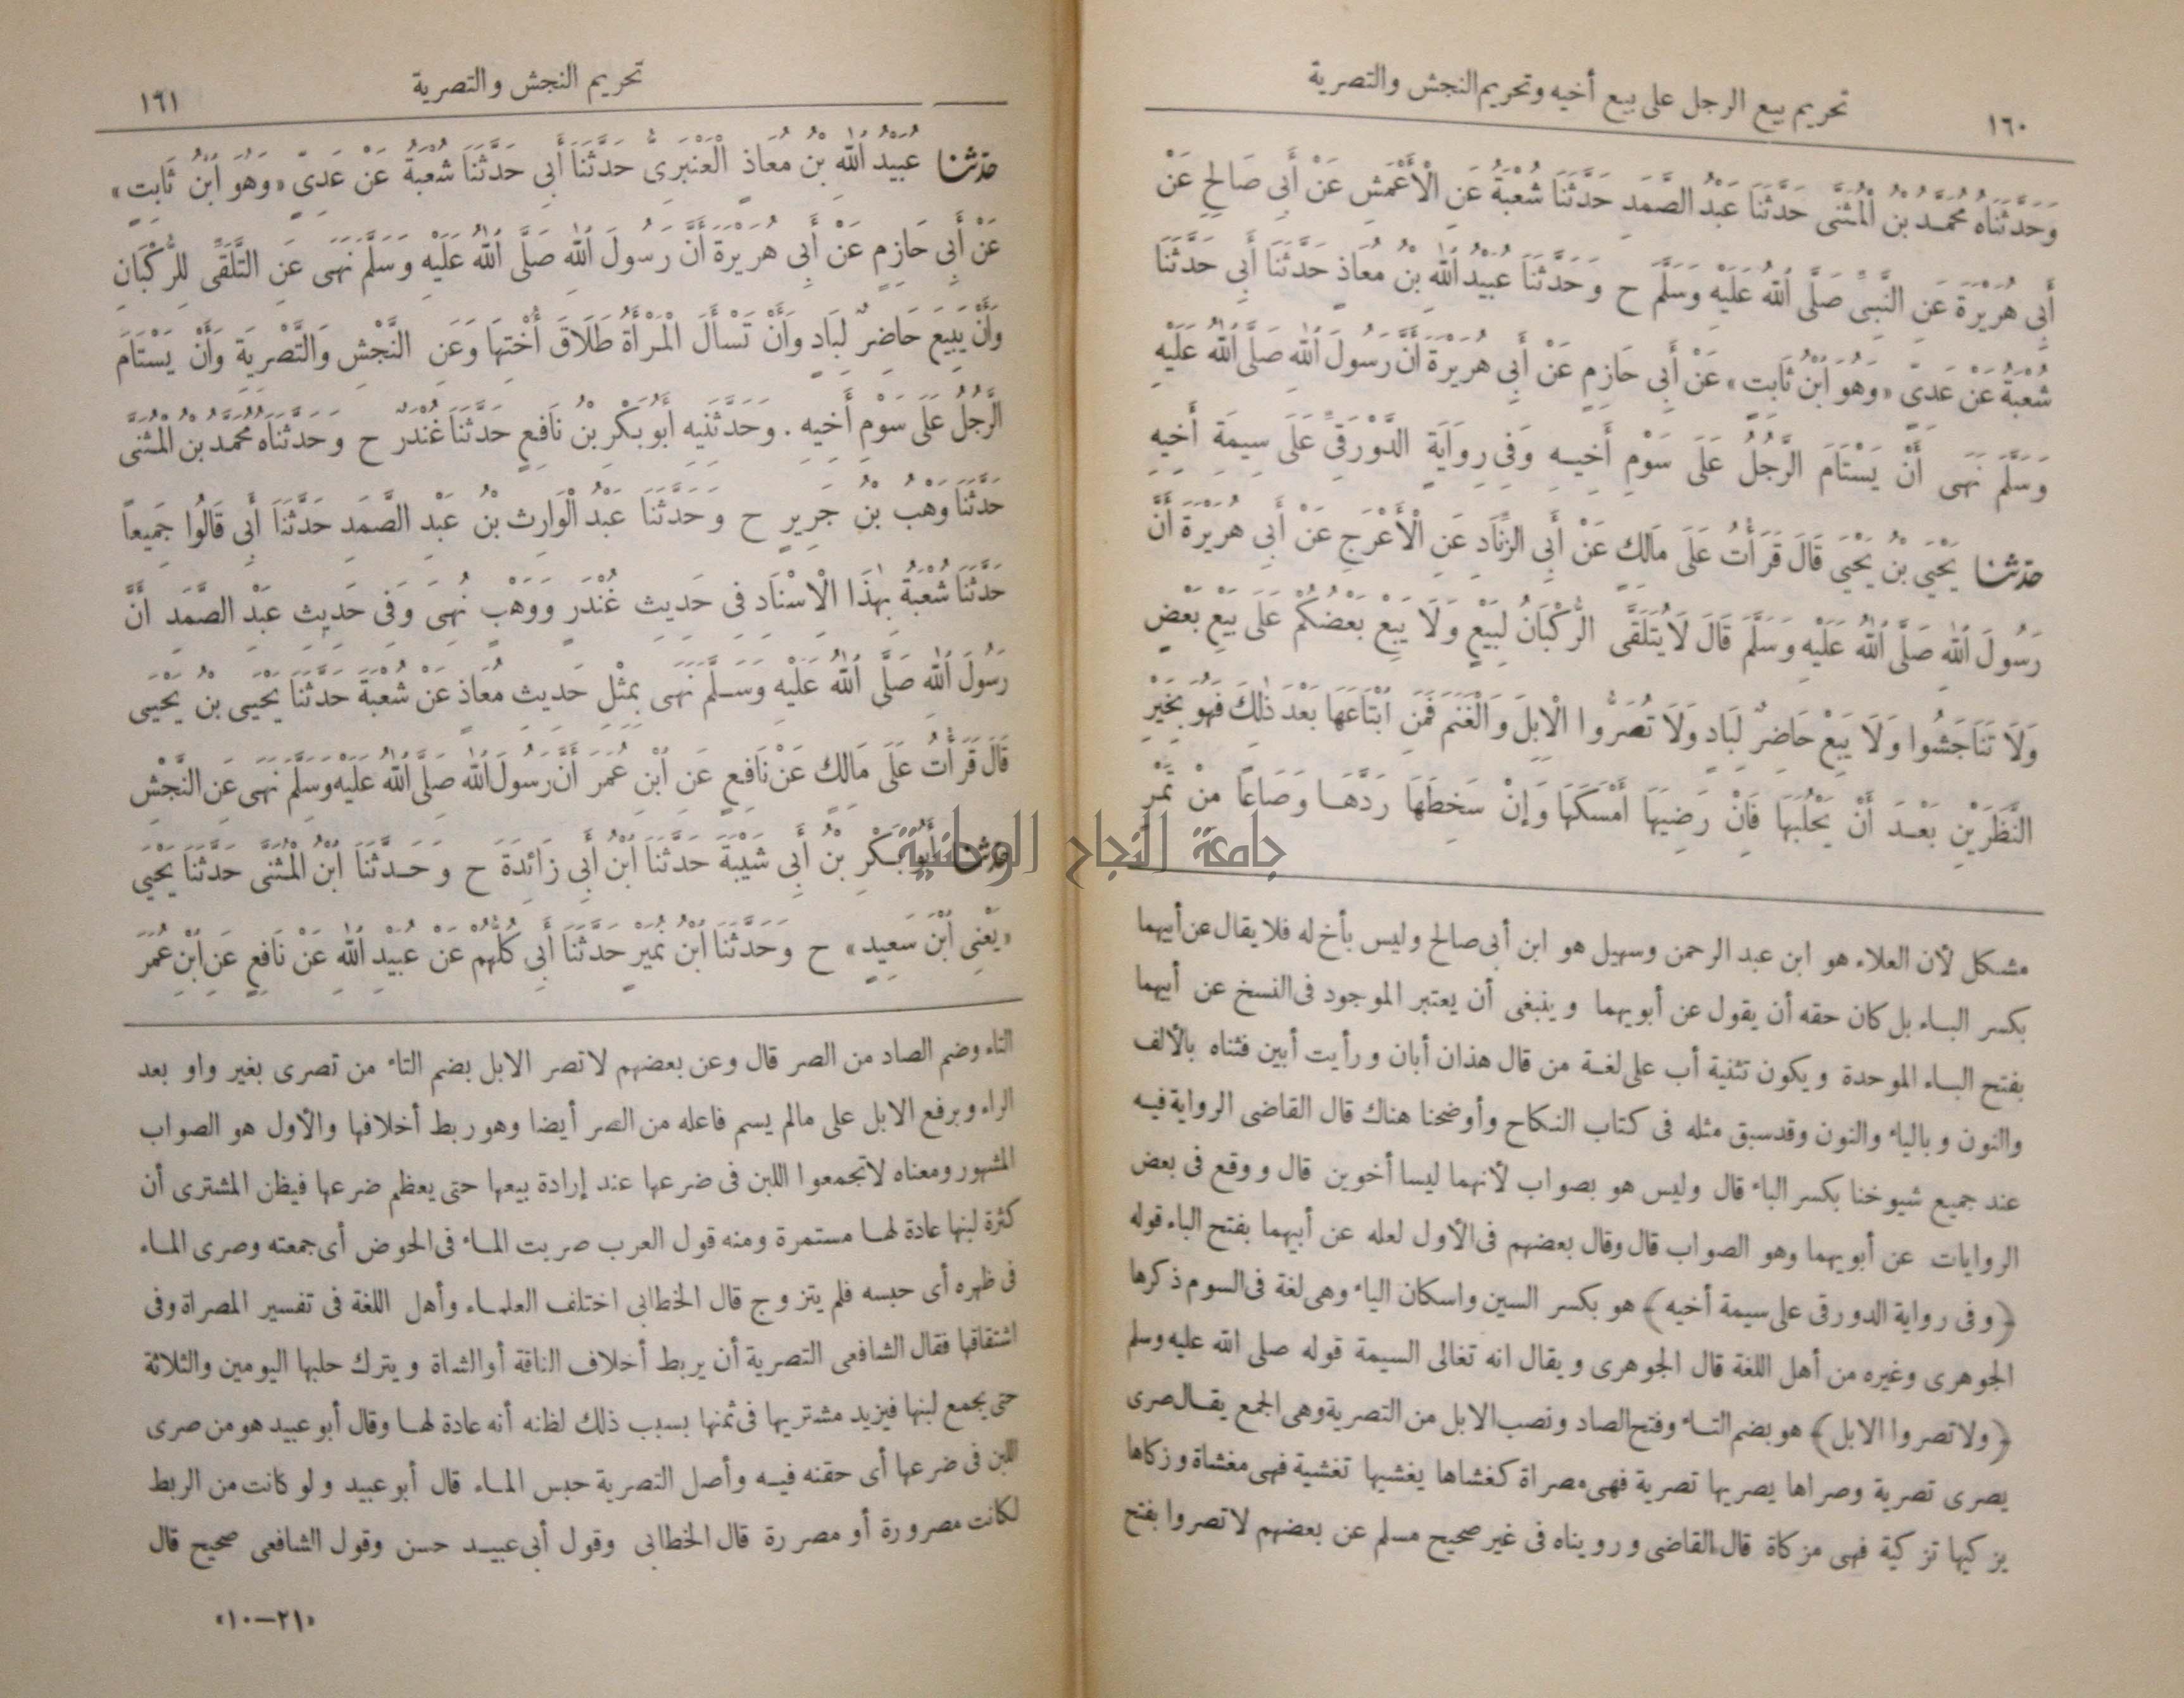 ١٦٠
تحريم بيع الرجل على بيع أخيه وتحريم النجش والتصرية
وَحَدَّثَنَاهُ مُحَمَّدُ بْنُ الْمُثَنَّى حَدَّثَنَا عَبْدُ الصَّمَدِ حَدَّثَنَا شُعْبَةُ عَنِ الْأَعْمَشِ عَنْ أَبِى صَالِحٍ عَنْ
أَبِى هُرَيْرَةَ عَنِ النَّبِىِّ صَلَّى اللهُ عَلَيْهِ وَسَلَّمَ ح وَحَدَّثَنَا عُبَيْدُ اللهِ بْنُ مُعَاذٍ حَدَّثَنَا أَبِى حَدَّثَنَا
شُعْبَةُ عَنْ عَدِىٍّ «وَهُوَ ابْنُ ثَابِتٍ» عَنْ أَبِى حَازِمٍ عَنْ أَبِى هُرَيْرَةَ أَنَّ رَسُولَ اللهِ صَلَّى اللهُ عَلَيْهِ
وَسَلَّمَ نَهَى أَنْ يَسْتَامَ الرَّجُلُ عَلَى سَوْمِ أَخِيهِ وَفِى رِوَايَةِ الدَّوْرَقِىِّ عَلَى سِيمَةِ أَخِيهِ
حدثنا يَحْيَى بْنُ يَحْيَى قَالَ قَرَأْتُ عَلَى مَالِكٍ عَنْ أَبِى الزِّنَادِ عَنِ الْأَعْرَجِ عَنْ أَبِى هُرَيْرَةَ أَنَّ
رَسُولَ اللهِ صَلَّى اللهُ عَلَيْهِ وَسَلَّمَ قَالَ لَا يُتَلَقَّى الرُّكْبَانُ لِبَيْعٍ وَلَا يَبِعْ بَعْضُكُمْ عَلَى بَيْعِ بَعْضٍ
وَلَا تَنَاجَشُوا وَلَا يَبِعْ حَاضِرٌ لِبَادٍ وَلَا تُصَرُّوا الْإِبِلَ وَالْغَنَمَ فَمَنِ ابْتَاعَهَا بَعْدَ ذٰلِكَ فَهُوَ بِخَيْرِ
النَّظَرَيْنِ بَعْدَ أَنْ يَحْلُبَهَا فَإِنْ رَضِيَهَا أَمْسَكَهَا وَإِنْ سَخِطَهَا رَدَّهَا وَصَاعًا مِنْ تَمْرٍ
مشكل لأن العلاء هو ابن عبد الرحمن وسهيل هو ابن أبى صالح وليس بأخ له فلا يقال عن أبيهما
بكسر الباء بل كان حقه أن يقول عن أبويهما وينبغى أن يعتبر الموجود فى النسخ عن أبيهما
بفتح الباء الموحدة ويكون تثنية أب على لغة من قال هذان أبان ورأيت أبين فثناه بالألف
والنون وبالياء والنون وقد سبق مثله فى كتاب النكاح وأوضحنا هناك قال القاضى الرواية فيه
عند جميع شيوخنا بكسر الباء قال وليس هو بصواب لأنهما ليسا أخوين قال ووقع فى بعض
الروايات عن أبويهما وهو الصواب قال وقال بعضهم فى الأول لعله عن أبيهما بفتح الباء قوله
﴿وفى رواية الدورقى على سيمة أخيه﴾ هو بكسر السين واسكان الياء وهى لغة فى السوم ذكرها
الجوهرى وغيره من أهل اللغة قال الجوهرى ويقال انه تغالى السيمة قوله صلى الله عليه وسلم
﴿ولا تصروا الابل﴾ هو بضم التاء وفتح الصاد ونصب الابل من التصرية وهى الجمع يقال صرى
يصرى تصرية وصراها يصريها تصرية فهى مصراة كغشاها يغشيها تغشية فهى مغشاة وزكاها
يزكيها تزكية فهى مزكاة قال القاضى ورويناه فى غير صحيح مسلم عن بعضهم لا تصروا بفتح
تحريم النجش والتصرية
١٦١
حدثنا عُبَيْدُ اللهِ بْنُ مُعَاذٍ الْعَنْبَرِىُّ حَدَّثَنَا أَبِى حَدَّثَنَا شُعْبَةُ عَنْ عَدِىٍّ «وَهُوَ ابْنُ ثَابِتٍ»
عَنْ أَبِى حَازِمٍ عَنْ أَبِى هُرَيْرَةَ أَنَّ رَسُولَ اللهِ صَلَّى اللهُ عَلَيْهِ وَسَلَّمَ نَهَى عَنِ التَّلَقِّى لِلرُّكْبَانِ
وَأَنْ يَبِيعَ حَاضِرٌ لِبَادٍ وَأَنْ تَسْأَلَ الْمَرْأَةُ طَلَاقَ أُخْتِهَا وَعَنِ النَّجْشِ وَالتَّصْرِيَةِ وَأَنْ يَسْتَامَ
الرَّجُلُ عَلَى سَوْمِ أَخِيهِ . وَحَدَّثَنِيهِ أَبُو بَكْرِ بْنُ نَافِعٍ حَدَّثَنَا غُنْدَرٌ ح وَحَدَّثَنَاهُ مُحَمَّدُ بْنُ الْمُثَنَّى
حَدَّثَنَا وَهْبُ بْنُ جَرِيرٍ ح وَحَدَّثَنَا عَبْدُ الْوَارِثِ بْنُ عَبْدِ الصَّمَدِ حَدَّثَنَا أَبِى قَالُوا جَمِيعاً
حَدَّثَنَا شُعْبَةُ بِهٰذَا الْإِسْنَادِ فِى حَدِيثِ غُنْدَرٍ وَوَهْبٍ نُهِىَ وَفِى حَدِيثِ عَبْدِ الصَّمَدِ أَنَّ
رَسُولَ اللهِ صَلَّى اللهُ عَلَيْهِ وَسَلَّمَ نَهَى بِمِثْلِ حَدِيثِ مُعَاذٍ عَنْ شُعْبَةَ حَدَّثَنَا يَحْيَى بْنُ يَحْيَى
قَالَ قَرَأْتُ عَلَى مَالِكٍ عَنْ نَافِعٍ عَنِ ابْنِ عُمَرَ أَنَّ رَسُولَ اللهِ صَلَّى اللهُ عَلَيْهِ وَسَلَّمَ نَهَى عَنِ النَّجْشِ
حدثنا أَبُو بَكْرِ بْنُ أَبِى شَيْبَةَ حَدَّثَنَا ابْنُ أَبِى زَائِدَةَ ح وَحَدَّثَنَا ابْنُ الْمُثَنَّى حَدَّثَنَا يَحْيَى
«يَعْنِى ابْنَ سَعِيدٍ» ح وَحَدَّثَنَا ابْنُ نُمَيْرٍ حَدَّثَنَا أَبِى كُلُّهُمْ عَنْ عُبَيْدِ اللهِ عَنْ نَافِعٍ عَنِ ابْنِ عُمَرَ
التاء وضم الصاد من الصر قال وعن بعضهم لا تصر الابل بضم التاء من تصرى بغير واو بعد
الراء وبرفع الابل على مالم يسم فاعله من الصر أيضا وهو ربط أخلافها والأول هو الصواب
المشهور ومعناه لا تجمعوا اللبن فى ضرعها عند إرادة بيعها حتى يعظم ضرعها فيظن المشترى أن
كثرة لبنها عادة لها مستمرة ومنه قول العرب صريت الماء فى الحوض أى جمعته وصرى الماء
فى ظهره أى حبسه فلم يتزوج قال الخطابى اختلف العلماء وأهل اللغة فى تفسير المصراة وفى
اشتقاقها فقال الشافعى التصرية أن يربط أخلاف الناقة أو الشاة ويترك حلبها اليومين والثلاثة
حتى يجمع لبنها فيزيد مشتريها فى ثمنها بسبب ذلك لظنه أنه عادة لها وقال أبو عبيد هو من صرى
اللبن فى ضرعها أى حقنه فيه وأصل التصرية حبس الماء قال أبو عبيد ولو كانت من الربط
لكانت مصرورة أو مصررة قال الخطابى وقول أبى عبيد حسن وقول الشافعى صحيح قال
«٢١—١٠»
جامعة النجاح الوطنية